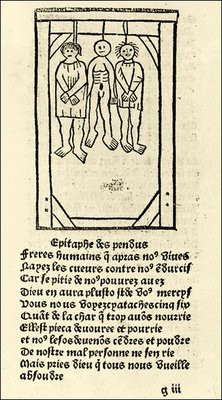 Epitaphe des pendus
Freres humains q̃ apꝛas noꝰ viues
Nayez les cueurs contre noꝰ ẽdurcif
Car se pitie de noꝰ pouurez auez
Dieu en aura plusto de voꝰ mercys
Vous nous voyez cy ataches cinq six
Quãt de la char q̃ trop auõs nourrie
Ellest pieca deuouree et pourrie
et noꝰ les os deuenõs cẽdres et pouldre
De nostre mal personne ne sen rie
Mais pries dieu q̃ tous nous vueille
absouldre
g iii